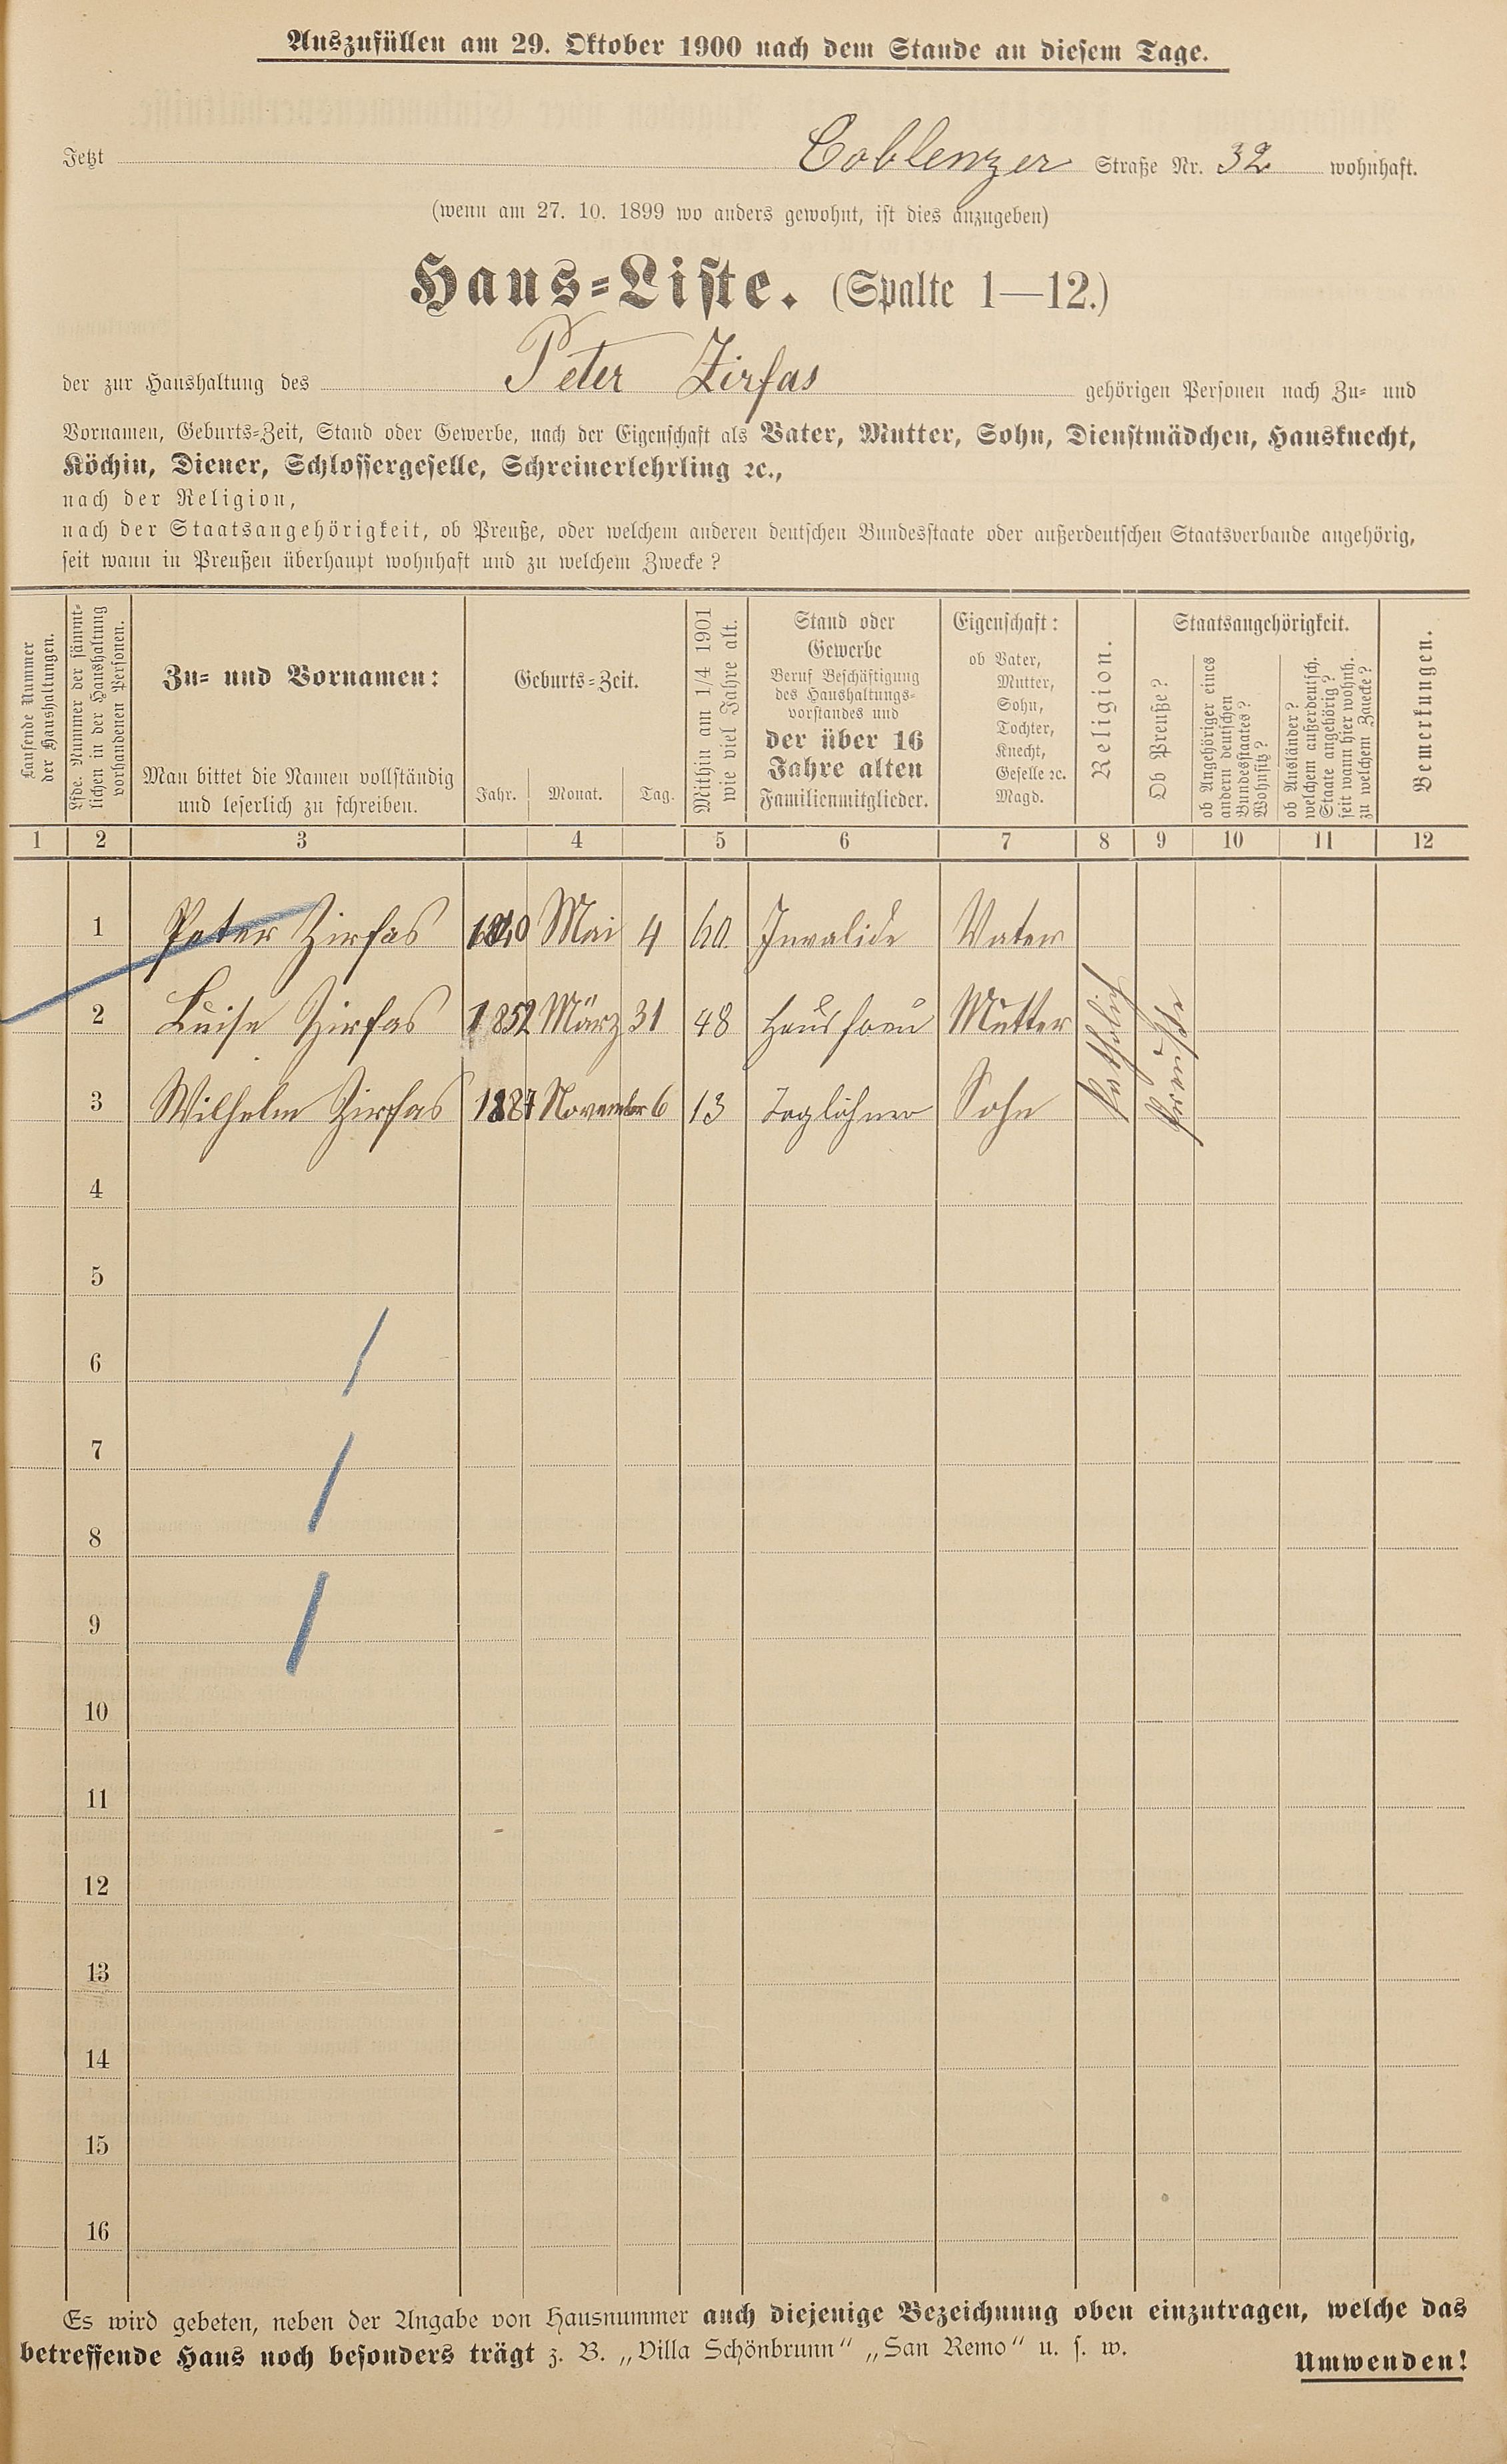 Auszufüllen am 29. Oktober 1900 nach dem Stande an diesem Tage.
Jetzt Coblenzer Straße Nr. 32 wohnhaft.
(wenn am 27. 10. 1899 wo anders gewohnt, ist dies anzugeben)
Haus=Liste. (Spalte 1—12.)
der zur Haushaltung des Peter Zirfas gehörigen Personen nach Zu= und
Vornamen, Geburts=Zeit, Stand oder Gewerbe, nach der Eigenschaft als Vater, Mutter, Sohn, Dienstmädchen, Hausknecht,
Köchin, Diener, Schlossergeselle, Schreinerlehrling ꝛc.,
nach der Religion,
nach der Staatsangehörigkeit, ob Preuße, oder welchem anderen deutschen Bundesstaate oder außerdeutschen Staatsverbande angehörig,
seit wann in Preußen überhaupt wohnhaft und zu welchem Zwecke?
Laufende Nummer
der Haushaltungen.
Lfde. Nummer der sämmt-
lichen in der Haushaltung
vorhandenen Personen.
Zu= und Vornamen:
Man bittet die Namen vollständig
und leserlich zu schreiben.
Geburts=Zeit.
Jahr. Monat. Tag.
Mithin am 1/4 1901
wie viel Jahre alt.
Stand oder
Gewerbe
Beruf Beschäftigung
des Haushaltungs-
vorstandes und
der über 16
Jahre alten
Familienmitglieder.
Eigenschaft:
ob Vater,
Mutter,
Sohn,
Tochter,
Knecht,
Geselle ꝛc.
Magd.
Religion.
Staatsangehörigkeit.
Ob Preuße?
ob Angehöriger eines
andern deutschen
Bundesstaates?
Wohnsitz?
ob Ausländer?
welchem außerdeutsch.
Staate angehörig?
seit wann hier wohnh.
zu welchem Zwecke?
Bemerkungen.
1 2 3 4 5 6 7 8 9 10 11 12
1 Peter Zirfas 1840 Mai 4 60 Invalide Vater
2 Luise Zirfas 1852 März 31 48 Hausfrau Mutter
3 Wilhelm Zirfas 1887 November 6 13 Taglöhner Sohn
katholich
Preuße
4
5
6
7
8
9
10
11
12
13
14
15
16
Es wird gebeten, neben der Angabe von Hausnummer auch diejenige Bezeichnung oben einzutragen, welche das
betreffende Haus noch besonders trägt z. B. „Villa Schönbrunn“ „San Remo“ u. s. w.
Umwenden!